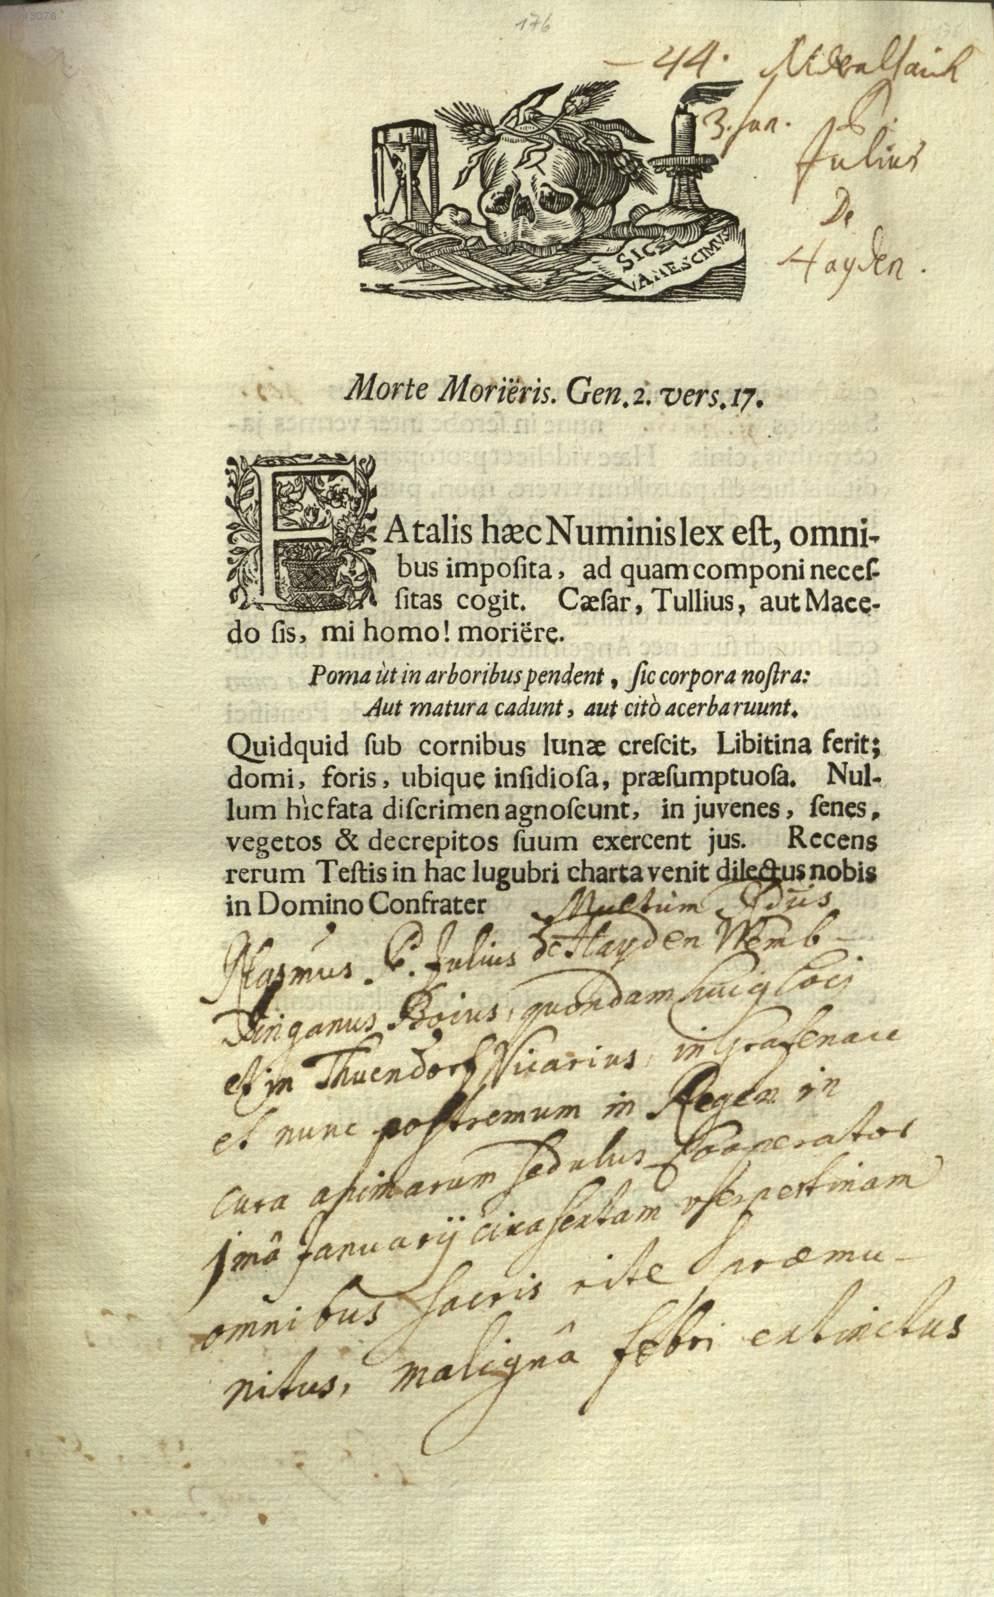 176
— 44. Nideraltaich
3. Jan. P.
Julius
De
Hayden.
SIC
VANESCIMUS
Morte Moriëris. Gen. 2. vers. 17.
FAtalis hæc Numinis lex eſt, omni-
bus impoſita, ad quam componi neceſ-
ſitas cogit. Cæſar, Tullius, aut Mace-
do ſis, mi homo! moriëre.
Poma ùt in arboribus pendent, ſic corpora noſtra:
Aut matura cadunt, aut citò acerba ruunt.
Quidquid ſub cornibus lunæ creſcit, Libitina ferit;
domi, foris, ubique inſidioſa, præſumptuoſa. Nul-
lum hìc fata diſcrimen agnoſcunt, in juvenes, ſenes,
vegetos & decrepitos ſuum exercent jus. Recens
rerum Teſtis in hac lugubri charta venit dilectus nobis
in Domino Confrater Multum Rdus
Rlgsmus P. Julius de Hayden Wemb-
dinganus Boius, quondam huig loci
et in Thuendorf Vicarius, in Grafenau
et nunc postremum in Regen in
cura animarum sedulus Cooperator
1mâ Januarij circa sextam vespertinam
omnibus sacris rite præmu-
nitus, malignâ febri extinctus